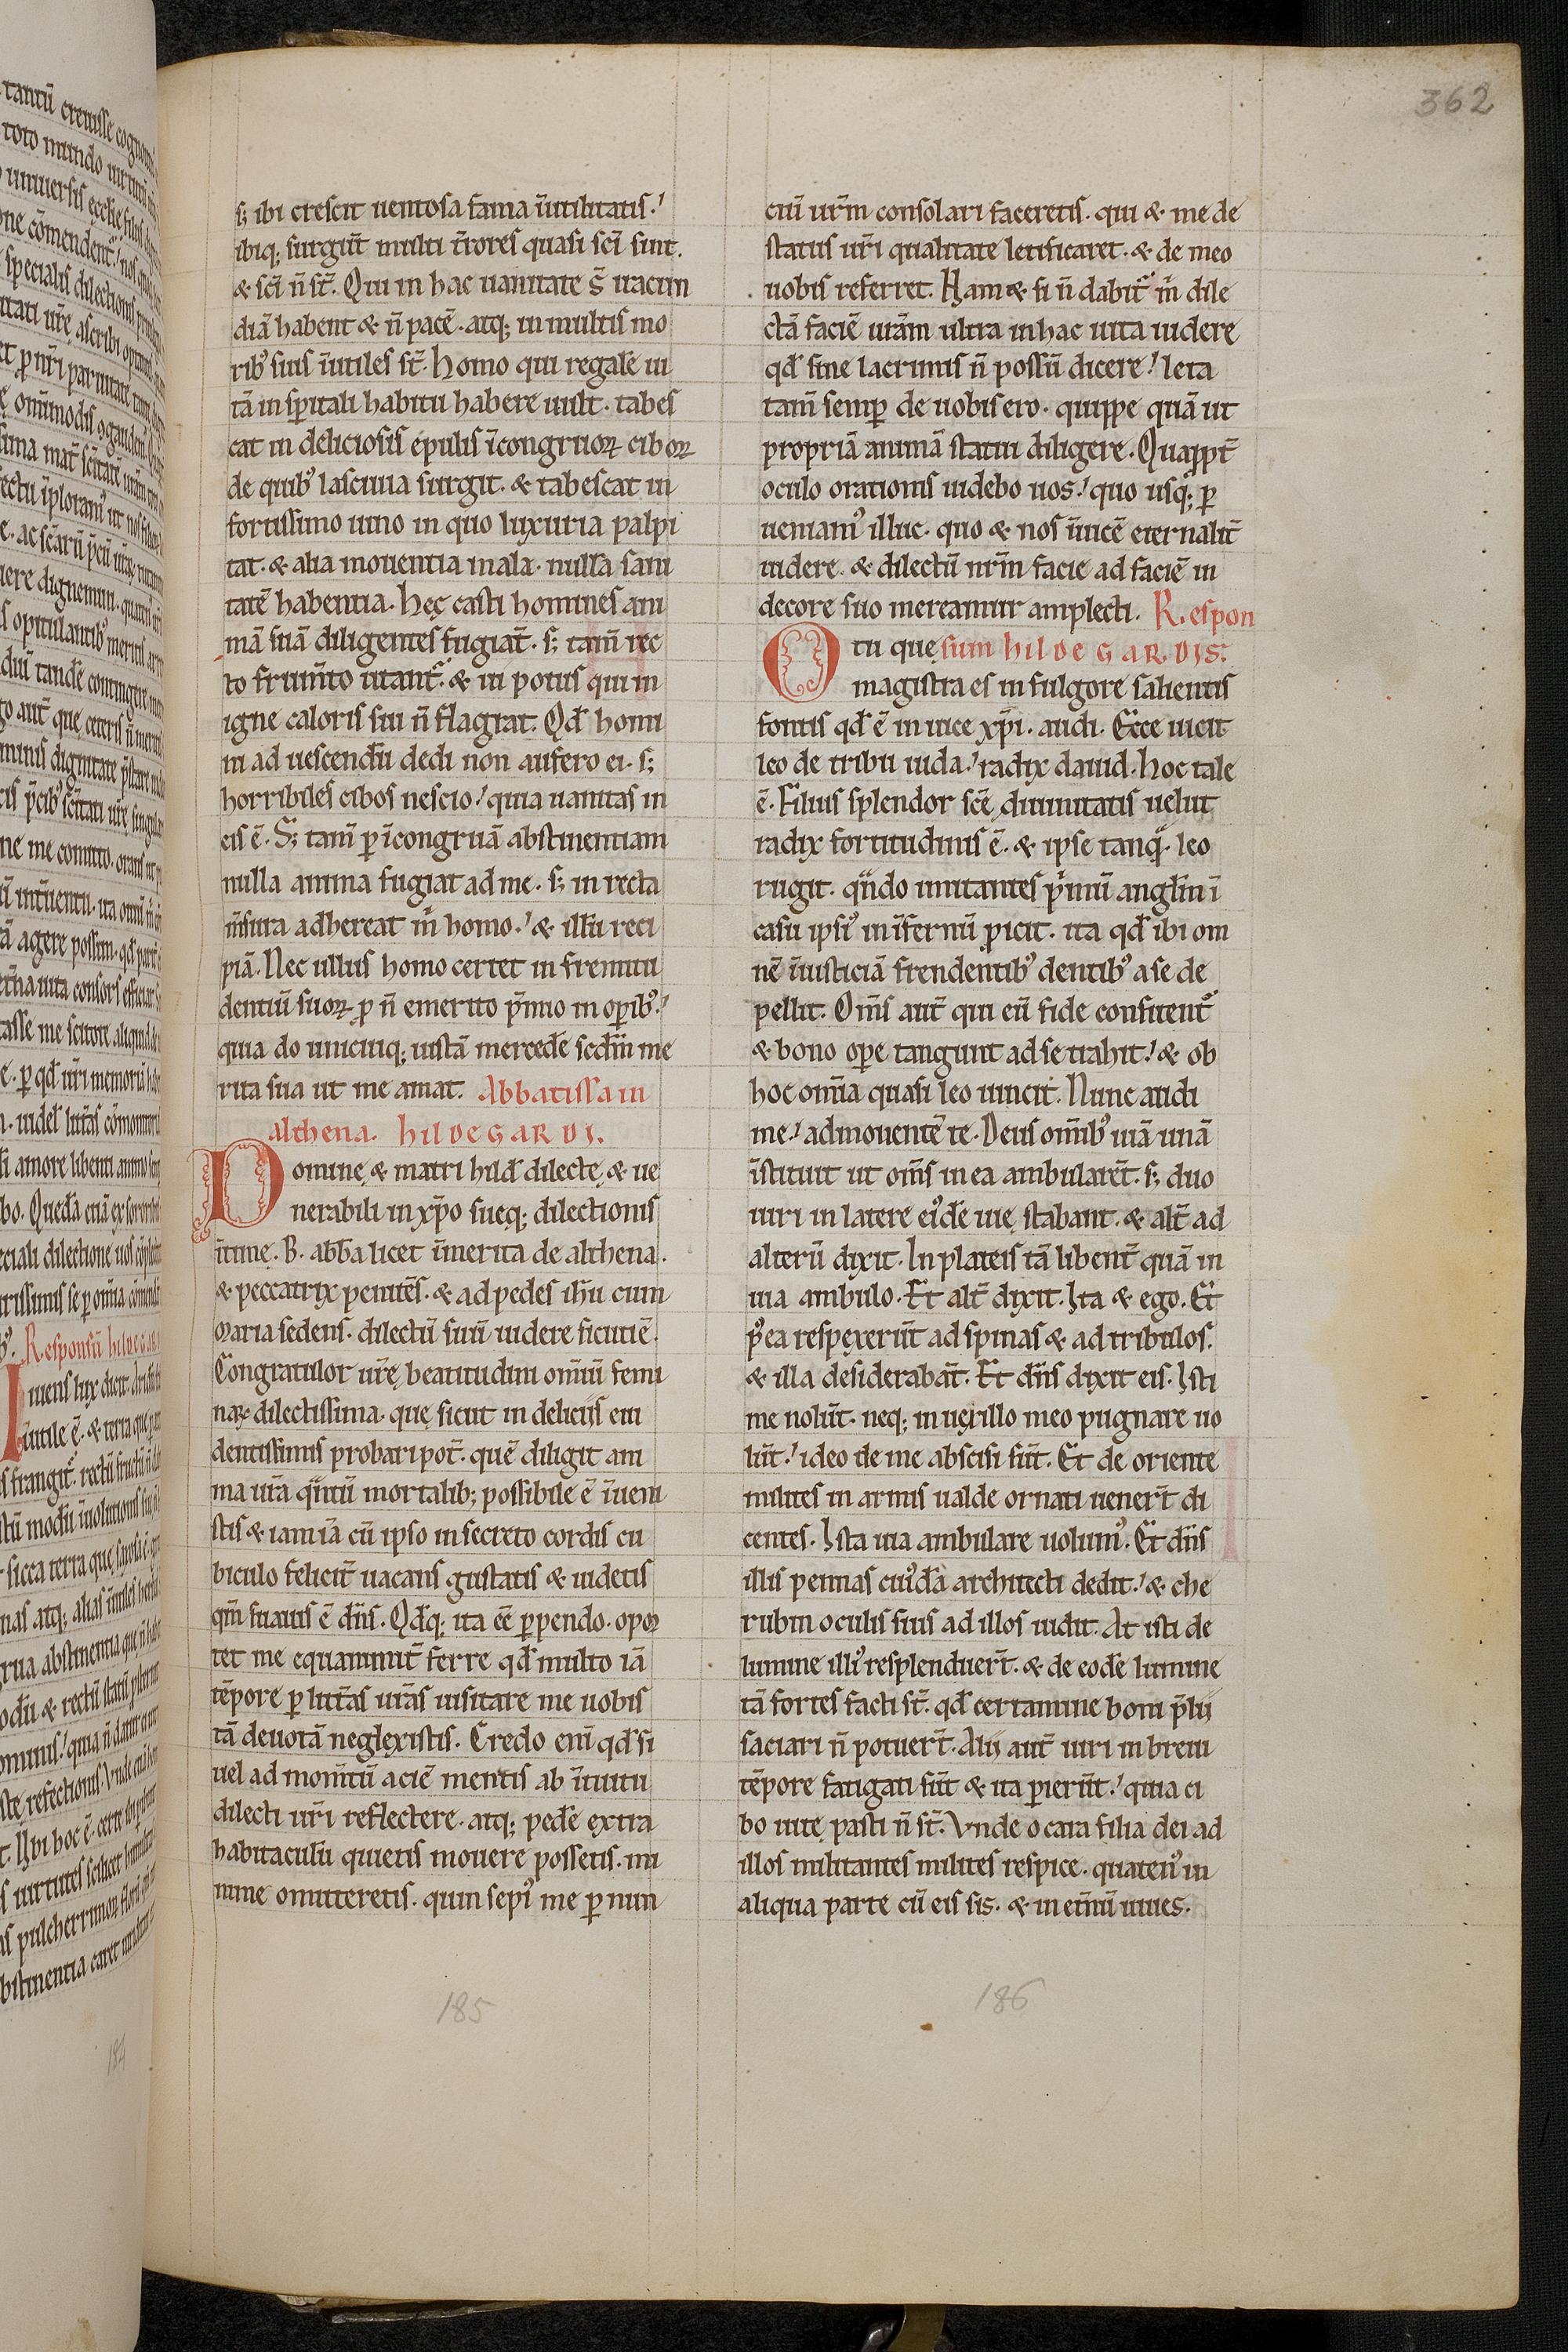 362
s; ibi crescit uentosa fama īutilitatis.
ibiq; surgūt multi t̄rores quasi sc̄i sint.
& sc̄i n̄ st̄. Qui in hac uanitate s̄ uacun
diā habent & n̄ pacē. atq; in multis mo
ribꝰ suis īutiles st̄. Homo qui regalē ui
tā in sp̄itali habitu habere uult. tabes
cat in deliciosis epulis īcongruoꝝ ciboꝝ
de quibꝰ lasciuia surgit. & tabescat in
fortissimo uino in quo luxuria palpi
tat. & alia mouentia mala. nullā sani
tatē habentia. Hęc casti homines ani
mā suā diligentes fugiāt. s; tam̄ rec
to frum̄to utant᷑. & in potus qui in
igne caloris sui n̄ flagrat. Qd̄ homi
ni ad uescendū dedi non aufero ei. s;
horribiles cibos nescio. quia uanitas in
eis ē. S; tam̄ ꝑ īcongruā abstinentiam
nulla anima fugiat ad me. s; in recta
m̄sura adhereat m̄ homo. & illū reci
piā. Nec ullus homo certet in fremitu
dentiū suoꝝ ꝓ n̄ emerito p̄mio in oꝑibꝰ.
quia do unicuiq; iustā mercedē sedm̄ me
rita sua ut me amat. Abbatissa in
althena. hildegardi.
Domine & matri hild̄ dilectę & ue
nerabili in xp̄o sueq; dilectionis
ītimę. B. abb̄a licet īmerita de althena.
& peccatrix penitēs. & ad pedes ih̄u cum
maria sedens. dilectū suū uidere sicut ē.
Congratulor ur̄ę beatitudini om̄iū femi
naꝝ dilectissima. quę sicut in delicijs eui
dentissimis probari pot̄. quē diligit ani
ma ur̄a qͣntū mortalib; possibile ē īueni
stis & iam iā cū ipso in secreto cordis cu
biculo felicit̄ uacans gustatis & uidetis
qm̄ suauis ē dn̄s. Qd̄q; ita eē ꝑpendo. opoꝝ
tet me equanimit̄ ferre qd̄ multo iā
tēpore ꝑ litt̄as ur̄as uisitare me uobis
tā deuotā neglexistis. Credo eni̅ qd̄ si
uel ad mom̄tū aciē mentis ab ītuitu
dilecti ur̄i reflectere. atq; pedē extra
habitaculū quietis mouere possetis. mi
nime omitteretis. quin sepiꝰ me ꝑ nun
185
ciū ur̄m consolari faceretis. qui & me de
status ur̄i qualitate letificaret. & de meo
uobis referret. Nam & si n̄ dabit᷑ m̄ dile
ctā faciē ur̄am ultra in hac uita uidere
qd̄ sine lacrimis n̄ possū dicere. leta
tam̄ semꝑ de uobis ero. quippe quā ut
propriā animā statui diligere. Quapropt̄
oculo orationis uidebo uos. quo usq; ꝑ
ueniamꝰ illuc. quo & nos īuicē eternalit̄
uidere. & dilectū nr̄m facie ad faciē in
decore suo mereamur amplecti. Respon
O tu quę sum hildegardis.
magistra es in fulgore salientis
fontis qd̄ ē in uice xp̄i. audi. Ecce uicit
leo de tribu iuda. radix dauid. Hoc tale
ē. Filius splendor scę̄ diuinitatis uelut
radix fortitudinis ē. & ipse tanqͣ. leo
rugit. qͣndo imitantes pͥmū angl̄m ī
casu ipsiꝰ in īfernū ꝓicit. ita qd̄ ibi om
nē īiusticiā frendentibꝰ dentibꝰ a se de
pellit. Om̄s aut̄ qui eū fide confitent᷑
& bono oꝑe tangunt ad se trahit. & ob
hoc om̄ia quasi leo uincit. Nunc audi
me. admouentē te. Deus om̄ibꝰ uiā unā
īstituit ut om̄s in ea ambularēt. s; duo
uiri in latere eiꝰdē uię stabant. & alt̄ ad
alterū dixit. In plateis tā libent̄ quā in
uia ambulo. Et alt̄ dixit. Ita & ego. Et
p̓ ea respexerūt ad spinas & ad tribulos.
& illa desiderabāt. Et dn̄s dixit eis. Isti
me nolūt. neq; in uexillo meo pugnare uo
lūt. ideo de me abscisi sūt. Et de oriente
milites in armis ualde ornati uenert̄ di
centes. Ista uia ambulare uolumꝰ. Et dn̄s
illis pennas cuiꝰdā architecti dedit. & che
rubin oculis suis ad illos uidit. At isti de
lumine illiꝰ resplenduert̄. & de eodē lumine
tā fortes facti st̄. qd̄ certamine boni p̄lij
saciari n̄ potuert̄. Alij aut̄ uiri in breui
tēpore fatigati sūt & ita ꝑierūt. quia ci
bo uitę pasti n̄ st̄. Vnde o cara filia dei ad
illos militantes milites respice. quatenꝰ in
aliqua parte cū eis sis. & in et̄nū uiues.
186